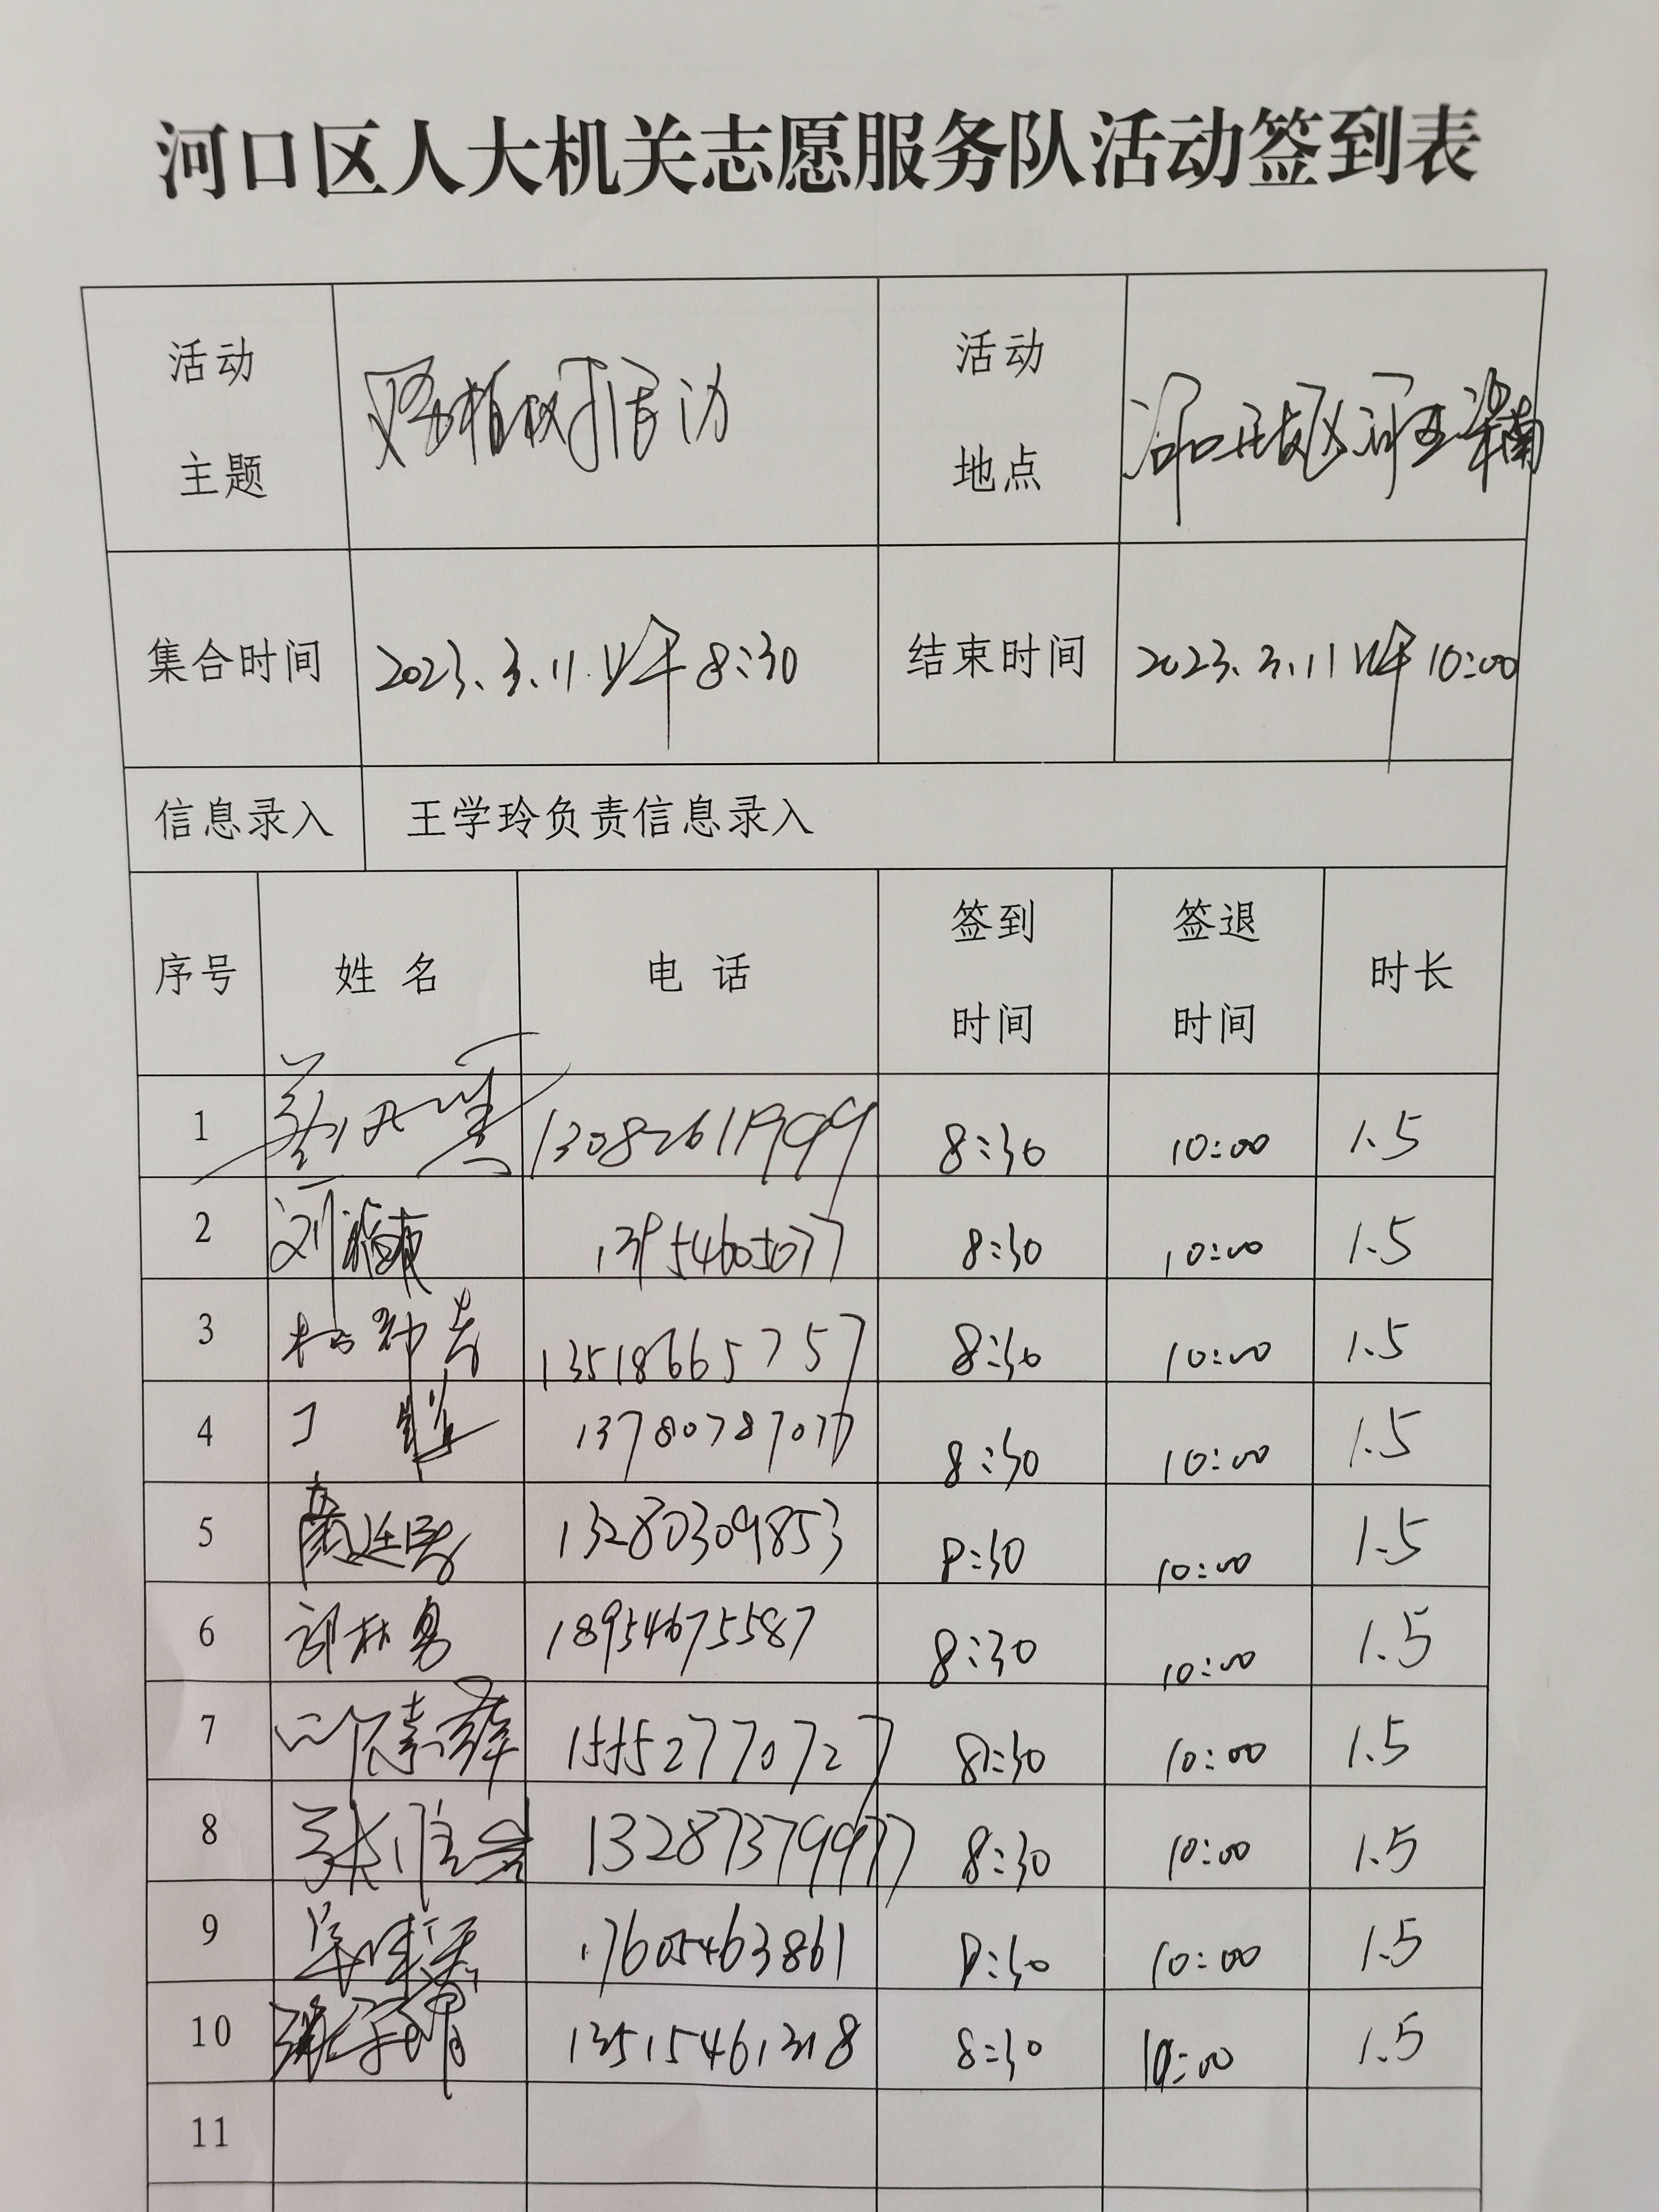 河口区人大机关志愿服务队活动签到表
活动主题 义务植树活动 活动地点
集合时间 2023.3.11.上午8:30 结束时间 2023.3.11上午10:00
信息录入 王学玲负责信息录入
序号 姓名 电话 签到时间 签退时间 时长
1 13082611999 8:30 10:00 1.5
2 8:30 10:00 1.5
3 13518665757 8:30 10:00 1.5
4 丁 13780787077 8:30 10:00 1.5
5 颜廷 13280309853 8:30 10:00 1.5
6 18954675587 8:30 10:00 1.5
7 15552770727 8:30 10:00 1.5
8 张 13287379977 8:30 10:00 1.5
9 17605463861 8:30 10:00 1.5
10 8:30 10:00 1.5
11